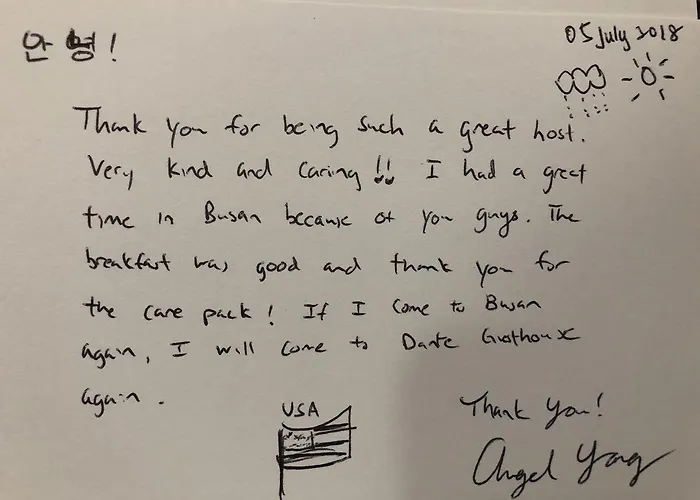 안녕!
05 July 2018
Thank you for being such a great host.
Very kind and caring!! I had a great
time in Busan because of you guys. The
breakfast was good and thank you for
the care pack! If I come to Busan
again, I will come to Dante Gusthouse
again.
USA
Thank You!
Angel Yang